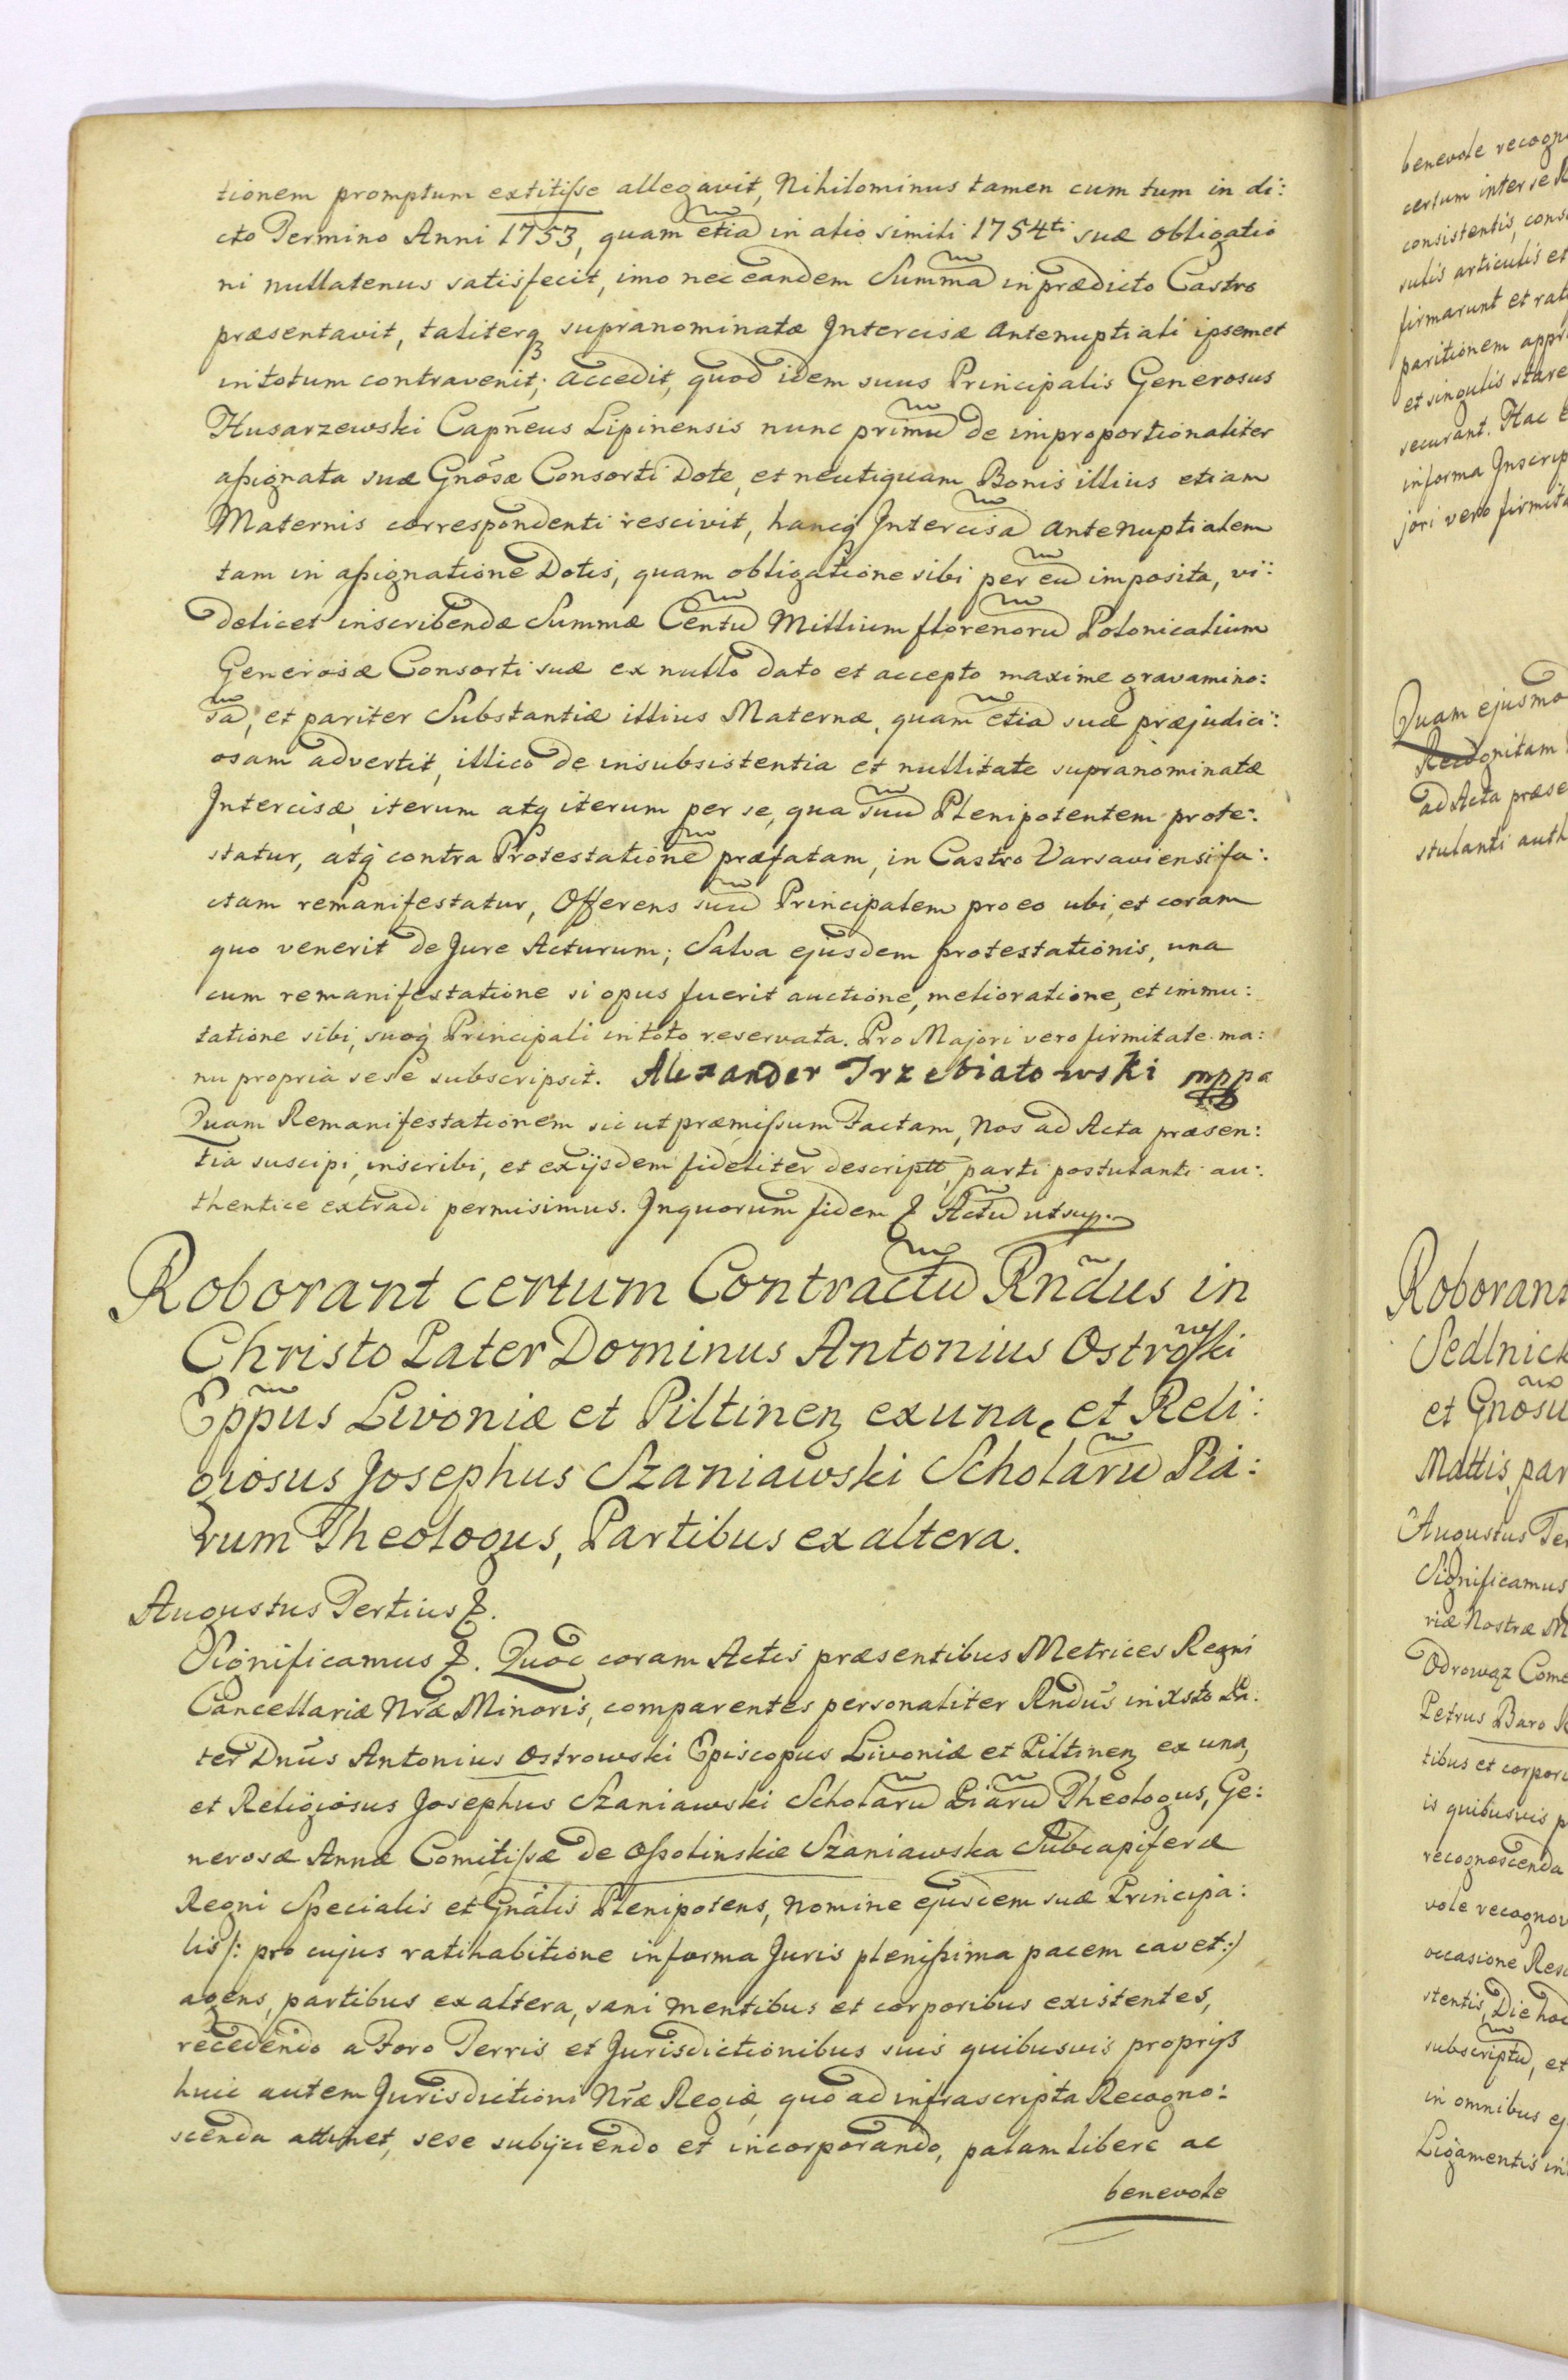 tionem promptum extitiſse allegavit, Nihilominus tamen cum tum in di:
cto Termino Anni 1753, quam etiā in alio simili 1754ti suæ obligatio
ni nullatenus satisfecit, imo nec eandem Summā in prædicto Castro
præsentavit, taliterq supranominatæ Intercisæ antenuptiali ipsemet
in totum contravenit; accedit, quod idem suus Principalis Generosus
Husarzewski Capn̄eus Lipinensis nunc primū de improportionaliter
aſsignata suæ Gnōsæ Consorti Dote, et neutiquam Bonis illius etiam
Maternis correspondenti rescivit, hancq Intercisā antenuptialem
tam in aſsignatione Dotis, quam obligatione sibi per eū imposita, vi:
delicet inscribendæ Summæ Centū Millium florenorū Polonicalium
Generosæ Consorti suæ ex nullo dato et accepto maxime gravamino:
sā, et pariter Substantiæ illius Maternæ, quam etiā suæ præjudici:
osam advertit, illico de insubsistentia et nullitate supranominatæ
Intercisæ, iterum atq iterum per se, qua suū Plenipotentem prote:
statur, atq contra Protestationē præfatam, in Castro Varsaviensi fa:
ctam remanifestatur, Offerens suū Principalem pro eo ubi et coram
quo venerit de Jure Acturum; Salva ejusdem protestationis, una
cum remanifestatione si opus fuerit auctione, melioratione, et immu:
tatione sibi, suoq Principali in toto reservata. Pro Majori vero firmitate ma:
nu propria sese subscripsit. Alexander Trzebiatowski mppa
Quam Remanifestationem sic ut præmiſsum Factam, Nos ad Acta præsen:
tia suscipi, inscribi, et ex ijsdem fideliter descriptt, parti postulanti au:
thentice extradi permisimus. In quorum fidem &. Actū ut sup.
Roborant certum Contractū Rn̄dus in
Christo Pater Dominus Antonius Ostrowski
Epp̄us Livoniæ et Piltinen ex una, et Reli:
giosus Josephus Szaniawski Scholarū Pia:
rum Theologus, Partibus ex altera.
Augustus Tertius &.
Significamus &. Quod coram Actis præsentibus Metrices Regni
Cancellariæ Nr̄æ Minoris, comparentes personaliter Rndūs in Xsto Pa:
ter Dnūs Antonius Ostrowski Episcopus Livoniæ et Piltinen ex una,
et Religiosus Josephus Szaniawski Scholarū Piarū Theologus, Ge:
nerosæ Annæ Comitiſsæ de Oſsolinskie Szaniawska Subdapiferæ
Regni Specialis et Gnālis Plenipotens, nomine ejusdem suæ Principa:
lis /: pro cujus ratihabitione in forma Juris pleniſsima pacem cavet :/
agens, partibus ex altera, sani mentibus et corporibus existentes,
recedendo a Foro Terris et Jurisdictionibus suis quibusvis proprijs
huic autem Jurisdictioni Nr̄æ Regiæ, quo ad infrascripta Recogno:
scenda attinet, sese subijciendo et incorporando, palam libere ac
benevole
benevole
certum inter se
consistentis,
sulis articulis et
firmarunt et
paritionem
et singulis stare
securant. Hac
in forma
jori vero
Quam
ad Acta
Sedlnick
et Gnōsu
Mattis
Augustus
Significamus
riæ Nostræ
Odrowąz
Petrus Baro
tibus et
is quibusvis
recognoscenda
vole
occasione
stentis, Die
subscriptū, et
in omnibus
Ligamentis